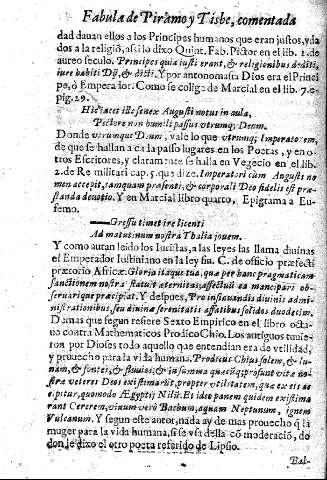 Fabula de Piramo y Tisbe, comentada
dad dauan ellos a los Principes humanos que eran justos, y da
dos a la religiõ, assi lo dixo Quint. Fab. Pictor en el lib. 1. de
aureo seculo. Principes quia iusti erant, & religionibus dediti,
iure habiti Dij, & dicti. Y por antonomasia Dios era el Princi
pe, ò Emperador. Como se colige de Marcial en el lib. 7. e-
pig. 29.
Hic iacet ille senex Augusti notus in aula,
Pectore non humili passus utrumq; Deum.
Donde utrumque Deum, vale lo que utrumq; Imperatorem,
de que se hallan a cada passo lugares en los Poetas, y en o-
tros Escritores, y claramente se halla en Vegecio en el lib.
2. de Re militari cap. 5. que dize. Imperatori cum Augusti no
men accepit, tamquam præsenti, & corporali Deo fidelis est præ-
standa deuotio. Y en Marcial libro quarto, Epigrama a Eu-
femo.
Gressu timet ire licenti
Ad matutinum nostra Thalia jouem.
Y como auran leido los Iuristas, a las leyes las llama diuinas
el Emperador Iustiniano en la ley fin. C. de officio præfecti
prætorio Africæ. Gloria itaque tua, quæ per hanc pragmaticam
sanctionem nostra statuit æternitas, effectui ea mancipari ob-
seruarique præcipiat. Y despues, Pro insinuandis diuinis admi-
nistrationibus, seu diuinæ serenitatis affatibus solidos duodecim.
Demas que segun refere Sexto Empirico en el libro octa-
uo contra Mathematicos Prodico Chio. Los antiguos tuuie-
ron por Dioses todo aquello que entendian era de vtilidad,
y prouecho para la vida humana. Prodicus Chius solem, & lu-
nam, & fontes, & fluuios, & in summa quæcũq; prosunt vitæ no-
stræ veteres Deos existimarũt, propter vtilitatem, quæ ex eis ac
cipitur, quomodo Ægyptij Nilũ. Et ideo panem quidem existima
rant Cererem, vinum verò Bacbum, aquam Neptunum, ignem
Vulcanum. Y segun este autor, nada ay de mas prouecho q̃ la
muger para la vida humana, si se vsa della cõ moderaciõ, do
don le dixo el otro poeta referido de Lipsio.
Bal-